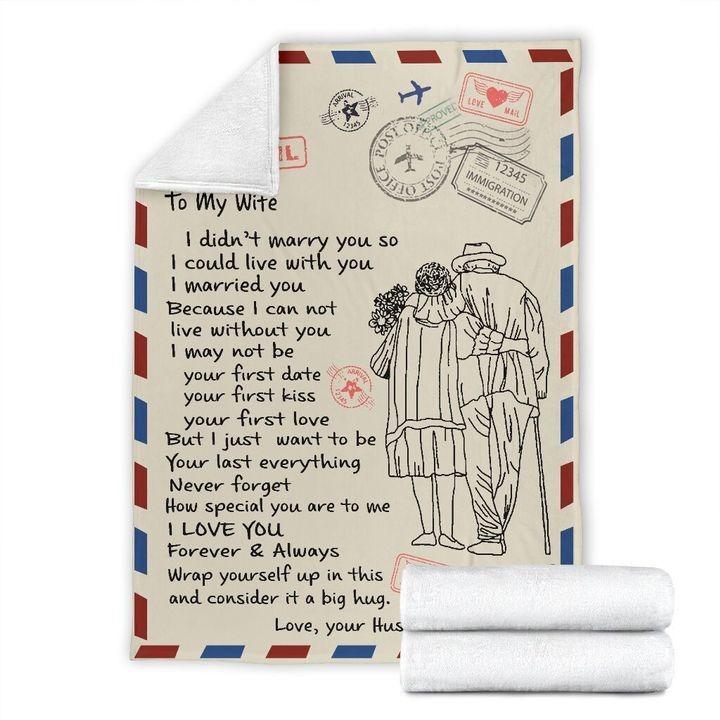 ARRIVAL
12345
APPROVED
LOVE MAIL
POST OFFICE
POST OFFICE
12345
IMMIGRATION
To My Wife
I didn't marry you so
I could live with you
I married you
Because I can not
live without you
I may not be
your first date
your first kiss
your first love
But I just want to be
Your last everything
Never forget
How special you are to me
I LOVE YOU
Forever & Always
Wrap yourself up in this
and consider it a big hug.
Love, your Hus
ARRIVAL
12345